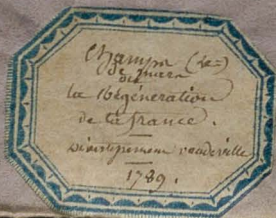 Champ (Le)
de mars
ou
la Régénération
de la france.
Divertissement vaudeville
1789.